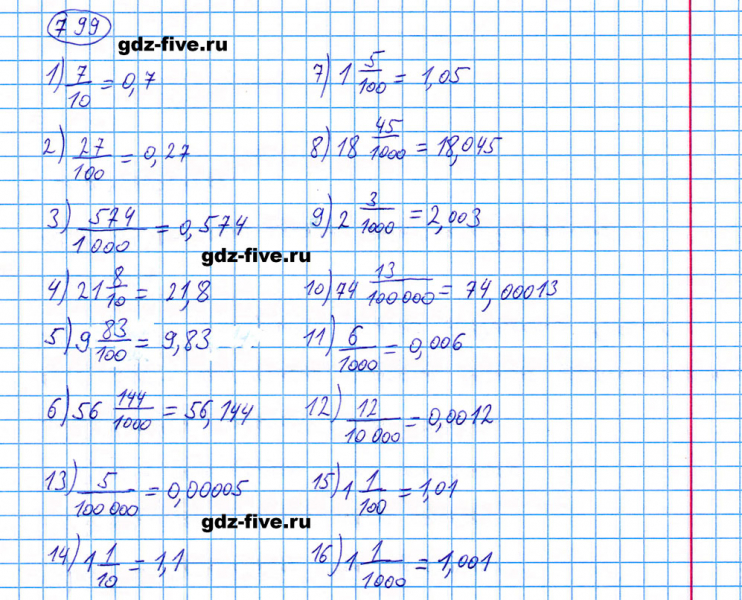 799
gdz-five.ru
1) 7/10 = 0,7
7) 1 5/100 = 1,05
2) 27/100 = 0,27
8) 18 45/1000 = 18,045
3) 574/1000 = 0,574
9) 2 3/1000 = 2,003
gdz-five.ru
4) 21 8/10 = 21,8
10) 74 13/100000 = 74,00013
5) 9 83/100 = 9,83
11) 6/1000 = 0,006
6) 56 144/1000 = 56,144
12) 12/10000 = 0,0012
13) 5/100000 = 0,00005
15) 1 1/100 = 1,01
gdz-five.ru
14) 1 1/10 = 1,1
16) 1 1/1000 = 1,001